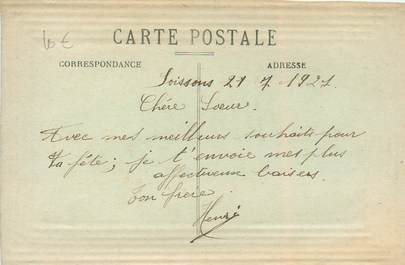 10 €
CARTE POSTALE
CORRESPONDANCE
ADRESSE
Soissons 21 7. 1921
Chére Soeur.
Avec mes meilleurs souhaits pour
ta fête; je t'envoie mes plus
affectueux baisers.
Ton frère.
Henri